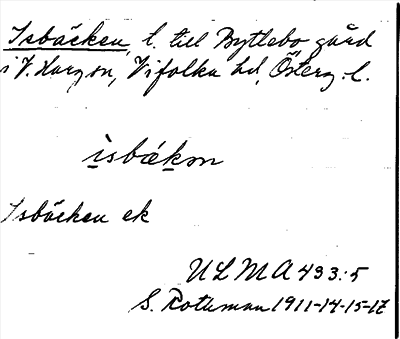 Isbäcken, l. till Bytlebo gård
i V. Harg sn, Vifolka hd, Österg. l.
ìsbækən
Isbäcken ek
ULMA 433:5
S. Rothman 1911-14-15-17